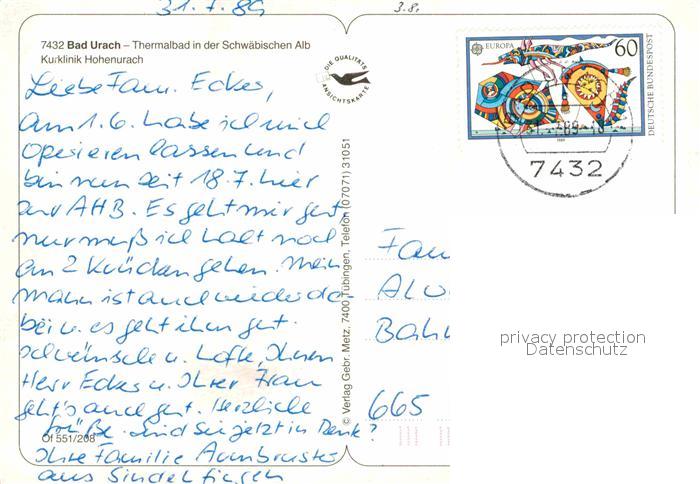 31.7.89
3.8.
7432 Bad Urach – Thermalbad in der Schwäbischen Alb
Kurklinik Hohenurach
DIE QUALITÄTS
ANSICHTSKARTE
Liebe Fam. Eckes,
am 1.6. habe ich mich
operieren lassen und
bin nun seit 18.7. hier
zur AHB. Es geht mir gut
nur muß ich halt noch
an 2 Krücken gehen. Mein
Mann ist auch wieder da-
bei u. es geht ihm gut.
Ich wünsche u. hoffe, Ihnen
Herr Eckes u. Ihrer Frau
geht's auch gut. Herzliche
Grüße. Sind Sie jetzt in Rente?
Ihre Familie Armbruster
aus Sindelfingen
Of 551/208
© Verlag Gebr. Metz, 7400 Tübingen, Telefon (07071) 31051
EUROPA 60
DEUTSCHE BUNDESPOST
1989
7432
Fam
Bahn
665
privacy protection
Datenschutz